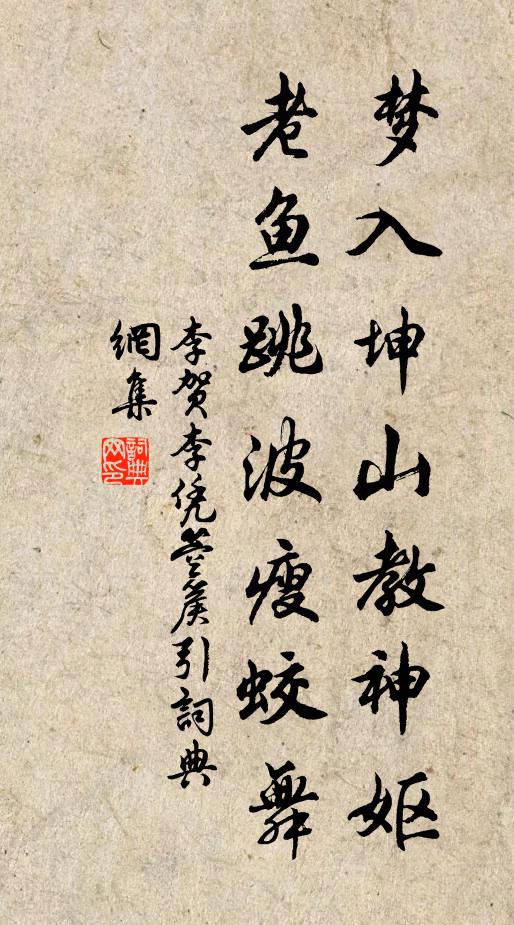 梦入坤山教神妪
老鱼跳波瘦蛟舞
李贺李凭箜篌引詞典
網集
詞典网印